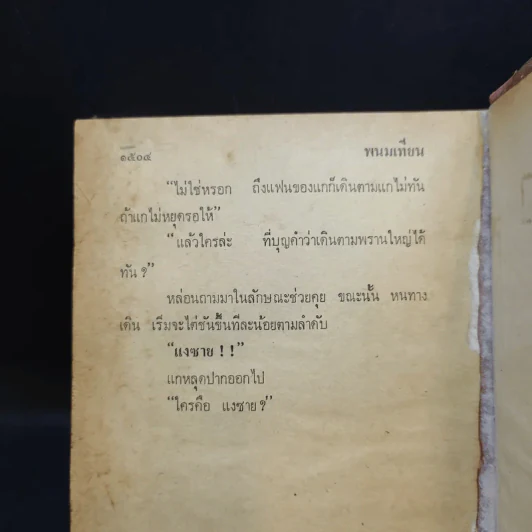 ๑๕๐๔ พนมเทียน
“ไม่ใช่หรอก ถึงแฟนของแกก็เดินตามแกไม่ทัน
ถ้าแกไม่หยุดรอให้”
“แล้วใครล่ะ ที่บุญคำว่าเดินตามพรานใหญ่ได้
ทัน ?”
หล่อนถามมาในลักษณะช่วยคุย ขณะนั้น หนทาง
เดิน เริ่มจะไต่ชันขึ้นทีละน้อยตามลำดับ
“แงซาย ! !”
แกหลุดปากออกไป
“ใครคือ แงซาย ?”